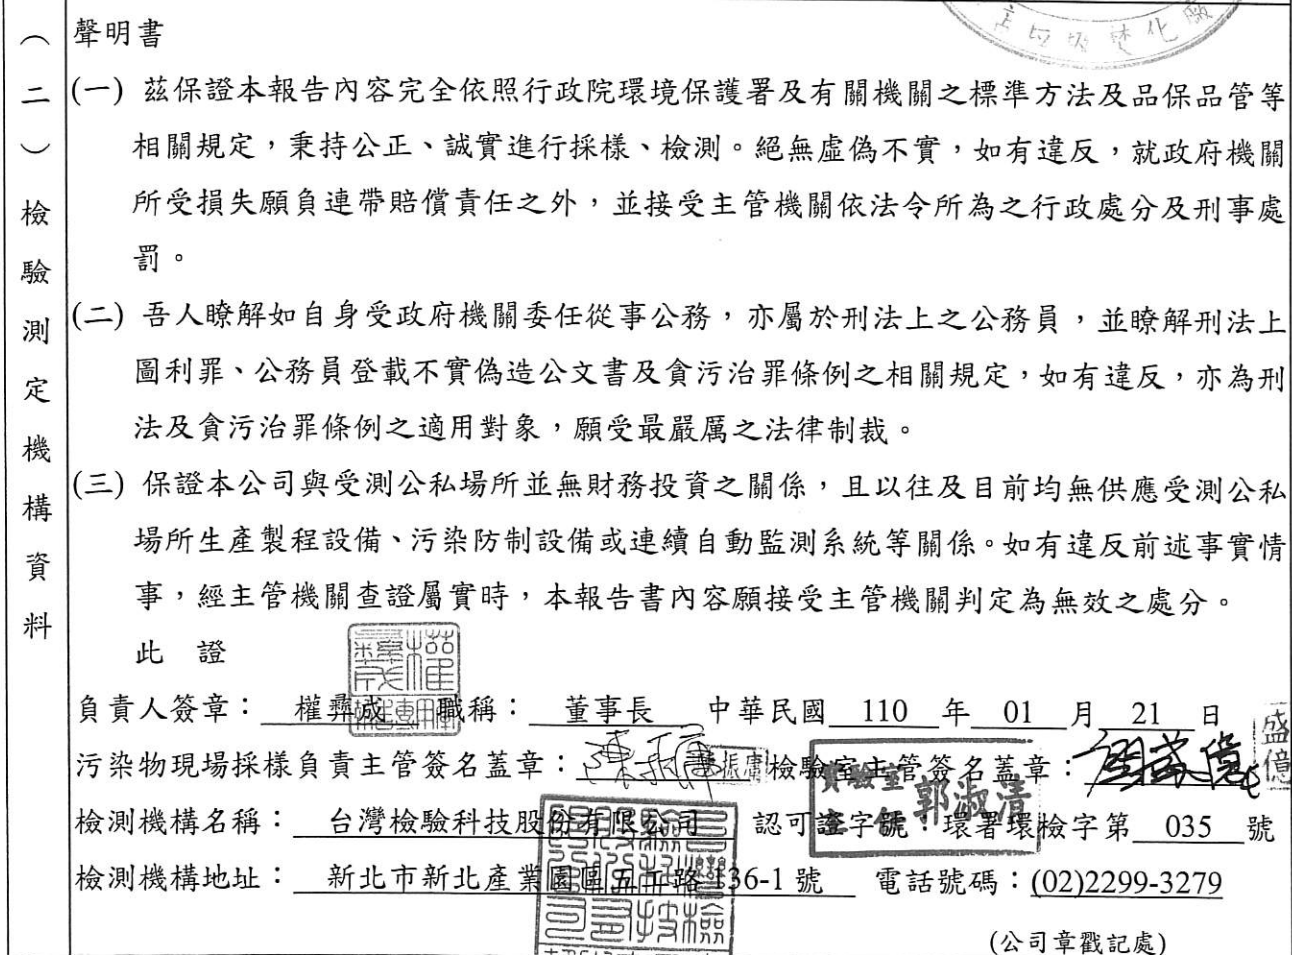 聲明書
(一) 茲保證本報告內容完全依照行政院環境保護署及有關機關之標準方法及品保品管等
相關規定，秉持公正、誠實進行採樣、檢測。絕無虛偽不實，如有違反，就政府機關
所受損失願負連帶賠償責任之外，並接受主管機關依法令所為之行政處分及刑事處
罰。
(二) 吾人瞭解如自身受政府機關委任從事公務，亦屬於刑法上之公務員，並瞭解刑法上
圖利罪、公務員登載不實偽造公文書及貪污治罪條例之相關規定，如有違反，亦為刑
法及貪污治罪條例之適用對象，願受最嚴厲之法律制裁。
(三) 保證本公司與受測公私場所並無財務投資之關係，且以往及目前均無供應受測公私
場所生產製程設備、污染防制設備或連續自動監測系統等關係。如有違反前述事實情
事，經主管機關查證屬實時，本報告書內容願接受主管機關判定為無效之處分。
此 證
負責人簽章： 權彝成 職稱： 董事長 中華民國 110 年 01 月 21 日
污染物現場採樣負責主管簽名蓋章： 檢驗室主管簽名蓋章：
實驗室
郭淑清
盛億
檢測機構名稱： 台灣檢驗科技股份有限公司 認可證字號：環署環檢字第 035 號
檢測機構地址： 新北市新北產業園區五工路 136-1 號 電話號碼：(02)2299-3279
(公司章戳記處)
（二）檢驗測定機構資料